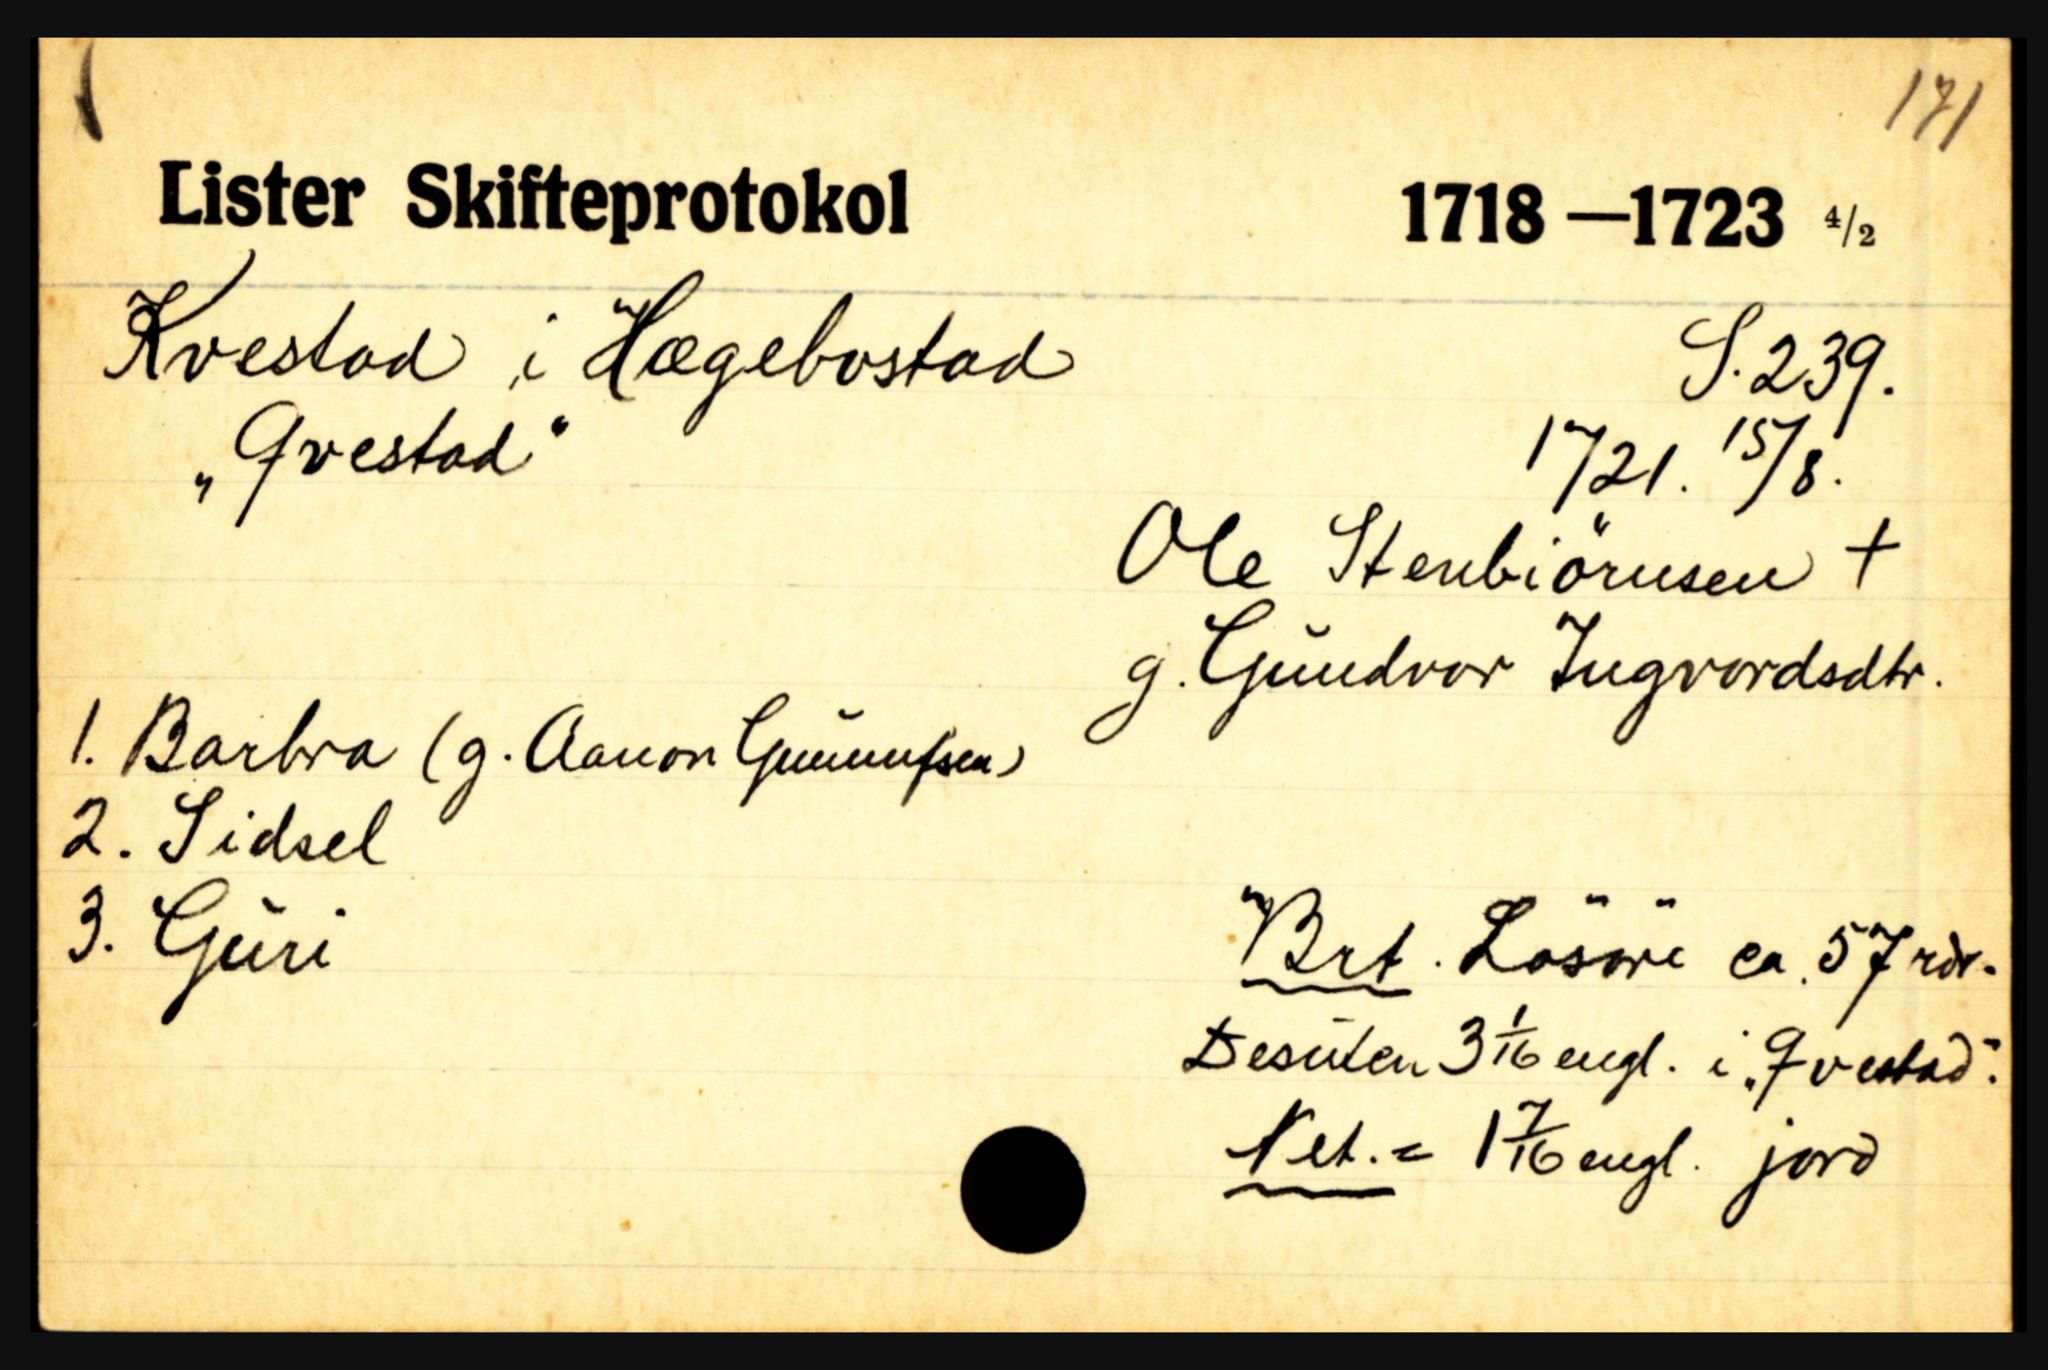 171
Lister Skifteprotokol 1718—1723 4/2
Kvestad i Hægebostad S. 239.
„Qvestad“ 1721. 15/8.
Ole Stenbiörnsen +
g. Gŭndvor Ingvordsdtr.
1. Barbra (g. Aanon Gŭnnŭfsen)
2. Sidsel
3. Gŭri
Brt. Lösöre ca. 57 rdr.
Desŭten 3 1/16 engl. i „Qvestad“.
Net. = 1 7/16 engl. jord